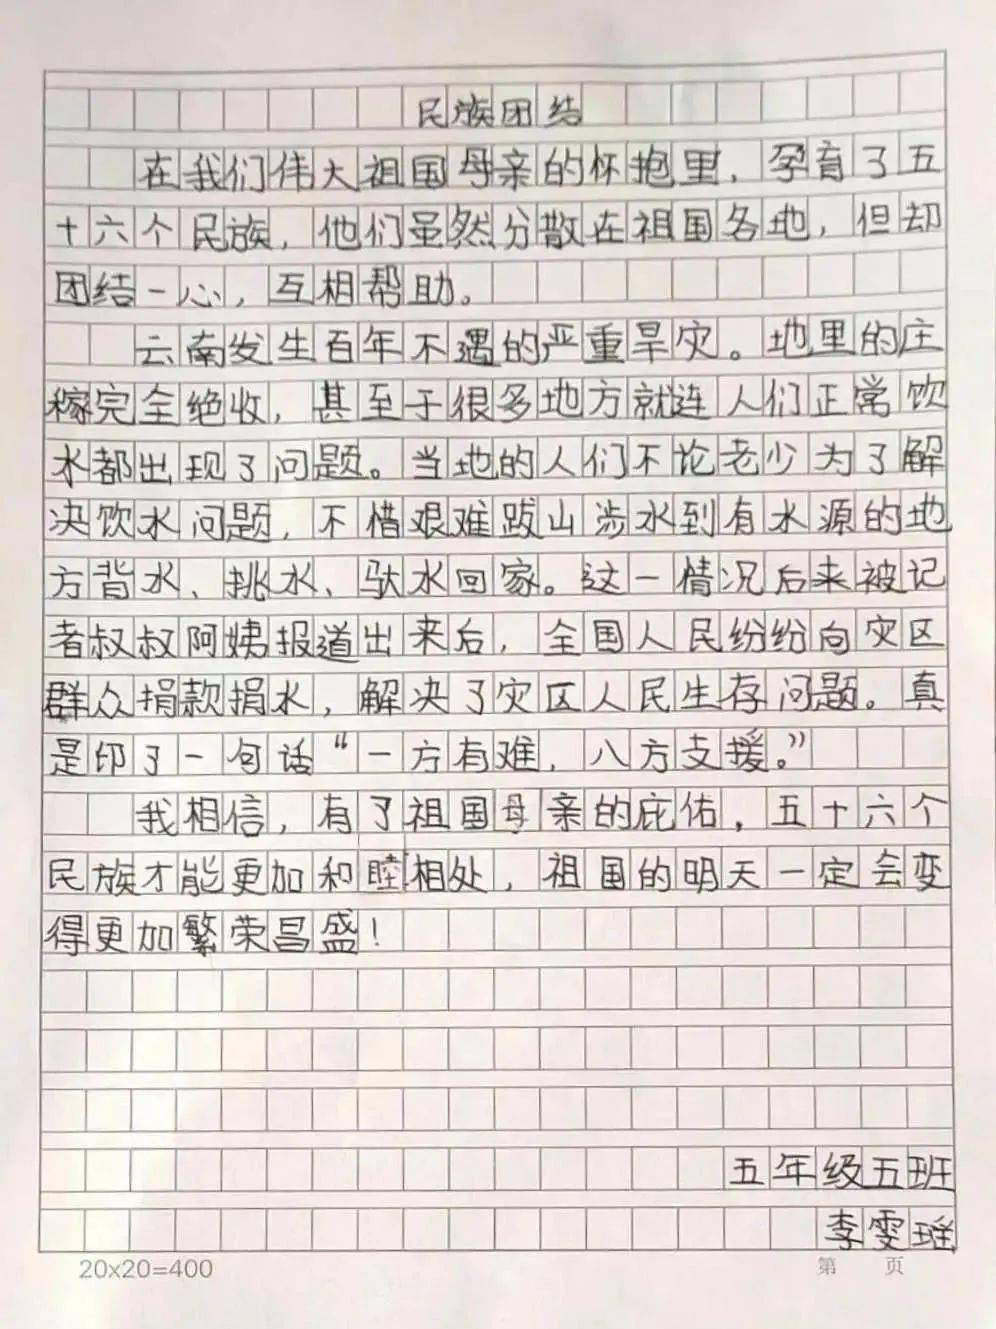 民族团结
在我们伟大祖国母亲的怀抱里，孕育了五
十六个民族，他们虽然分散在祖国各地，但却
团结一心，互相帮助。
云南发生百年不遇的严重旱灾。地里的庄
稼完全绝收，甚至于很多地方就连人们正常饮
水都出现了问题。当地的人们不论老少为了解
决饮水问题，不惜艰难跋山涉水到有水源的地
方背水、挑水、驮水回家。这一情况后来被记
者叔叔阿姨报道出来后，全国人民纷纷向灾区
群众捐款捐水，解决了灾区人民生存问题。真
是印了一句话“一方有难，八方支援。”
我相信，有了祖国母亲的庇佑，五十六个
民族才能更加和睦相处，祖国的明天一定会变
得更加繁荣昌盛！
五年级五班
李雯瑶
20×20=400
第 页